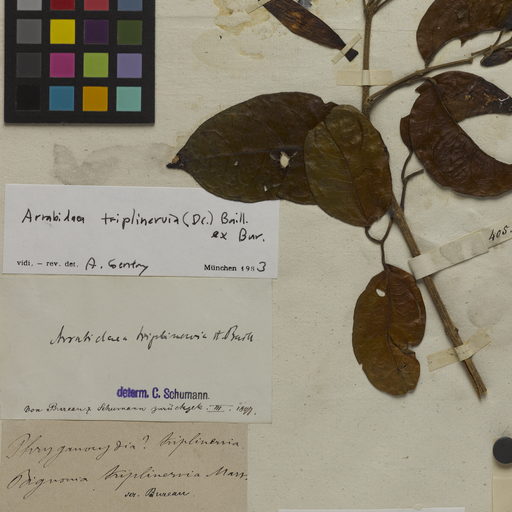 Arrabidaea triplinervia (DC.) Baill.
ex Bur.
vidi. – rev. det. A. Gentry München 1983
Arrabidaea triplinervia H. Baill
determ. C. Schumann.
Von Bureau & Schumann zurückgek. III. 1897.
Phryganocydia? triplinervia
Bignonia triplinervia Mart.
sec. Bureau.
405